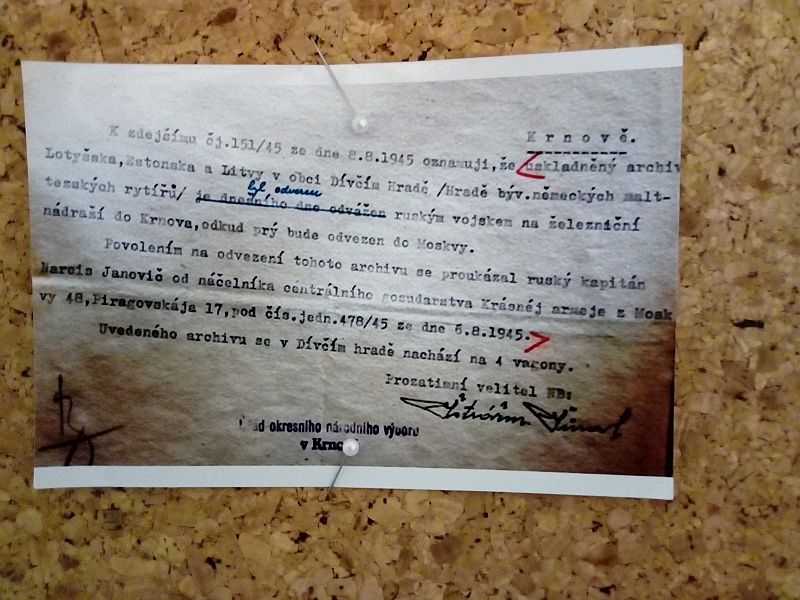 K r n o v ě.
K zdejšímu čj.151/45 ze dne 8.8.1945 oznamuji,že uskladněný archiv
Lotyšska,Estonska a Litvy v obci Dívčím Hradě /Hradě býv.německých malt-
byl odvezen
tezských rytířů/ je dnešního dne odvážen ruským vojskem na železniční
nádraží do Krnova,odkud prý bude odvezen do Moskvy.
Povolením na odvezení tohoto archivu se proukázal ruský kapitán
Narcis Janovič od náčelníka centrálního gosudarstva Krásnéj armeje z Mosk
vy 48,Piragovskája 17,pod čís.jedn.478/45 ze dne 6.8.1945.
Uvedeného archivu se v Dívčím hradě nachází na 4 vagony.
Prozatimní velitel NB:
okresního národního výboru
v Krno